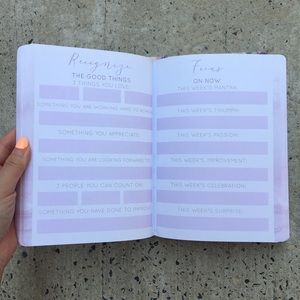 Recognize
THE GOOD THINGS
3 THINGS YOU LOVE:
SOMETHING YOU ARE WORKING HARD TO
SOMETHING YOU APPRECIATE:
SOMETHING YOU ARE LOOKING FORWARD TO:
3 PEOPLE YOU CAN COUNT ON:
SOMETHING YOU HAVE DONE TO IMPROVE
Focus
ON NOW
THIS WEEK'S MANTRA:
THIS WEEK'S TRIUMPH:
THIS WEEK'S PASSION:
THIS WEEK'S IMPROVEMENT:
THIS WEEK'S CELEBRATION:
THIS WEEK'S SURPRISE: